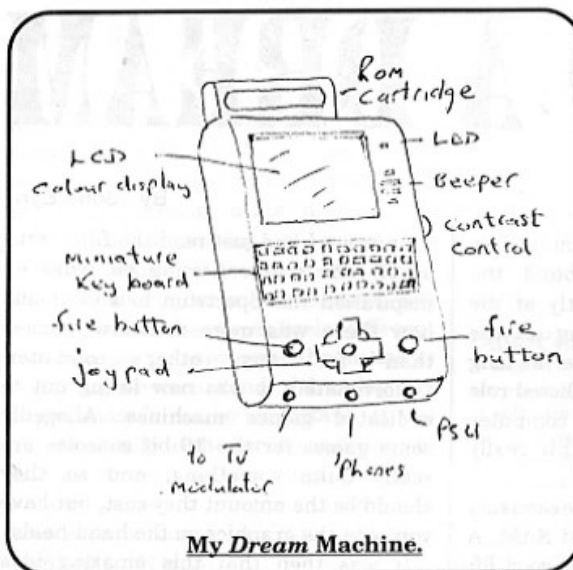 Rom
Cartridge
LCD
Colour display
LED
Beeper
Contrast
Control
Miniature
Key board
Fire button
Fire
button
Joypad
to TV
Modulator
Phones
PSU
My Dream Machine.